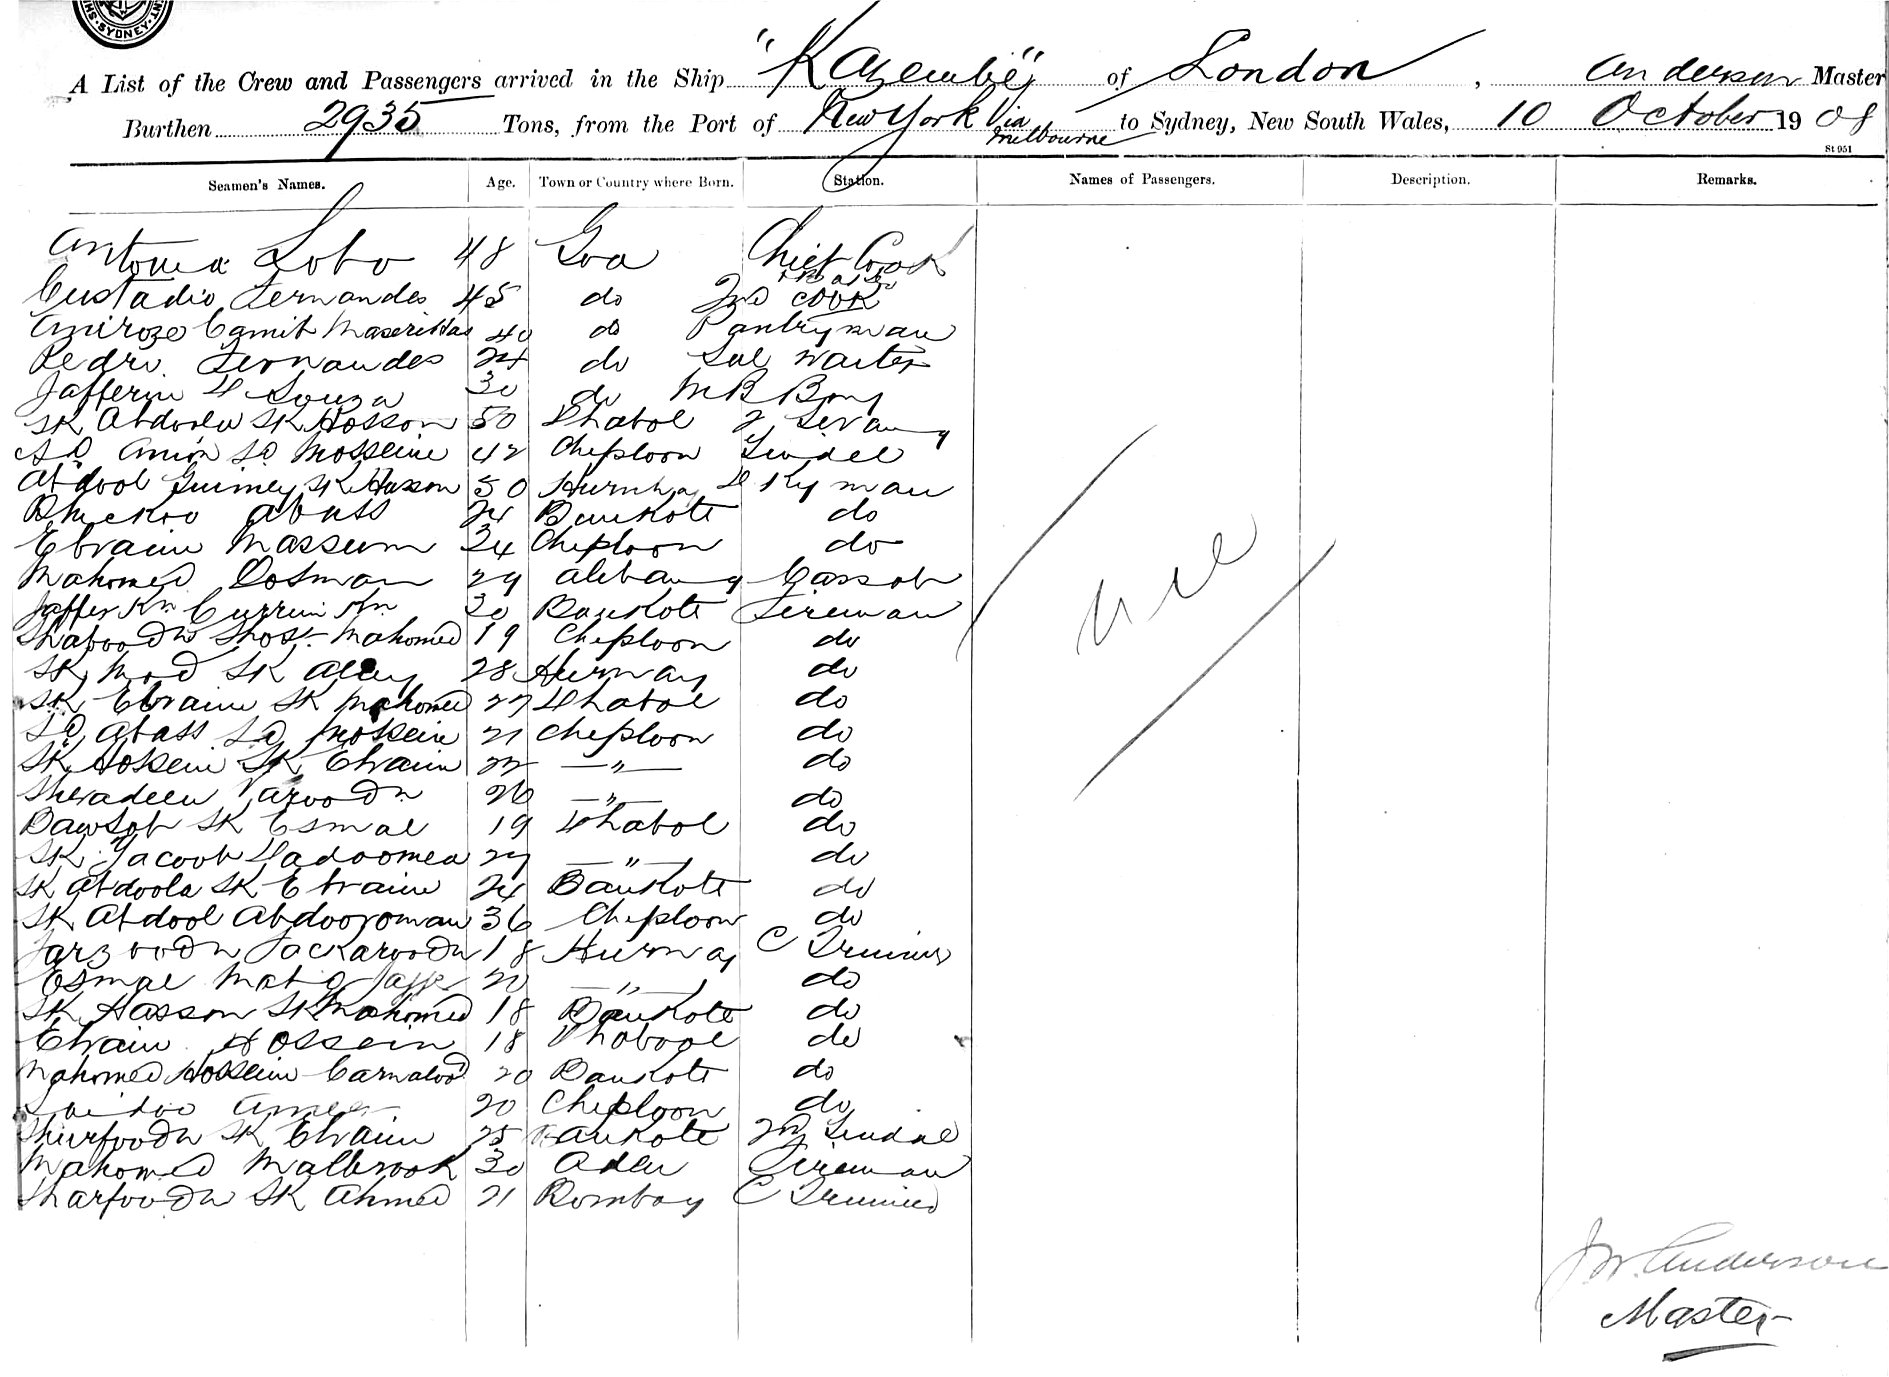 SYDNEY
A List of the Crew and Passengers arrived in the Ship "Kazembe" of London, Anderson Master
Burthen 2935 Tons, from the Port of New York Via Melbourne to Sydney, New South Wales, 10 October 1908
St 951
Seamen's Names. Age. Town or Country where Born. Station. Names of Passengers. Description. Remarks.
Lobo 48 Goa Chief Cook
Custadio Fernandes 45 do 2nd Cook
Camit 40 do Pantryman
Pedro Fernandes 24 do Sal Waiter
D Souza 30 do M R Boy
SK Abdoola SK Hosson 50 Dhabol 2 Serang
Sd Amon Sd Mosseine 42 Cheploon Tindel
Abdool SK Hasson 50 Hurnay D Kyman
Abass 24 Bankote do
Ebraim Massum 34 Cheploon do
Mahomed Oosman 29 Cassab
Jaffer Kn Currim Kn 30 Bankote Fireman
Mahomed 19 Cheploon do
SK Mod SK Alley 28 Hurnay do
SK Ebraim SK Mahomed 27 Dhabol do
Sd Abass Sd Mossein 21 Cheploon do
SK Hossein SK Ebraim 22 —"— do
—"— do
Dawood SK Esmal 19 Dhabol do
SK Yacoob Dadoomea 27 —"— do
SK Abdoola SK Ebraim 24 Bankote do
SK Abdool Abdooroman 36 Cheploon do
18 Hurnay C Trimmer
Esmal 20 —"— do
SK Hasson SK Mahomed 18 Bankote do
Ebraim Hossein 18 Dhabool do
Mahomed Hossein 20 Bankote do
20 Cheploon do
SK Ebraim 25 Bankote 2nd Tindal
Mahomed Malbrook 30 Aden Fireman
Sharfoodn SK Ahmed 21 Bombay C Trimmer
Nil
J W Anderson
Master